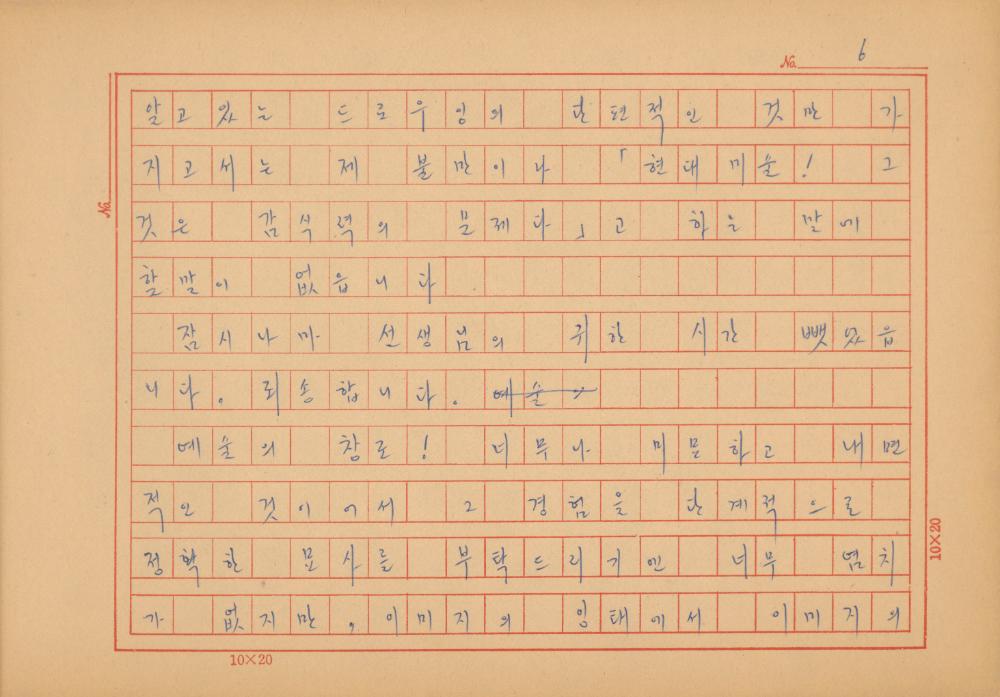 No. 6
알고 있는 드로우잉의 단편적인 것만 가
지고서는 제 불만이나 「현대미술! 그
것은 감식력의 문제다」고 하는 말에
할말이 없읍니다
잠시나마 선생님의 귀한 시간 뺏았읍
니다. 죄송합니다. 예술
예술의 창로! 너무나 미문하고 내면
적인 것이어서 그 경험을 단계적으로
정확한 묘사를 부탁드리기엔 너무 염치
가 없지만, 이미지의 잉태에서 이미지의
No.
10×20
10×20